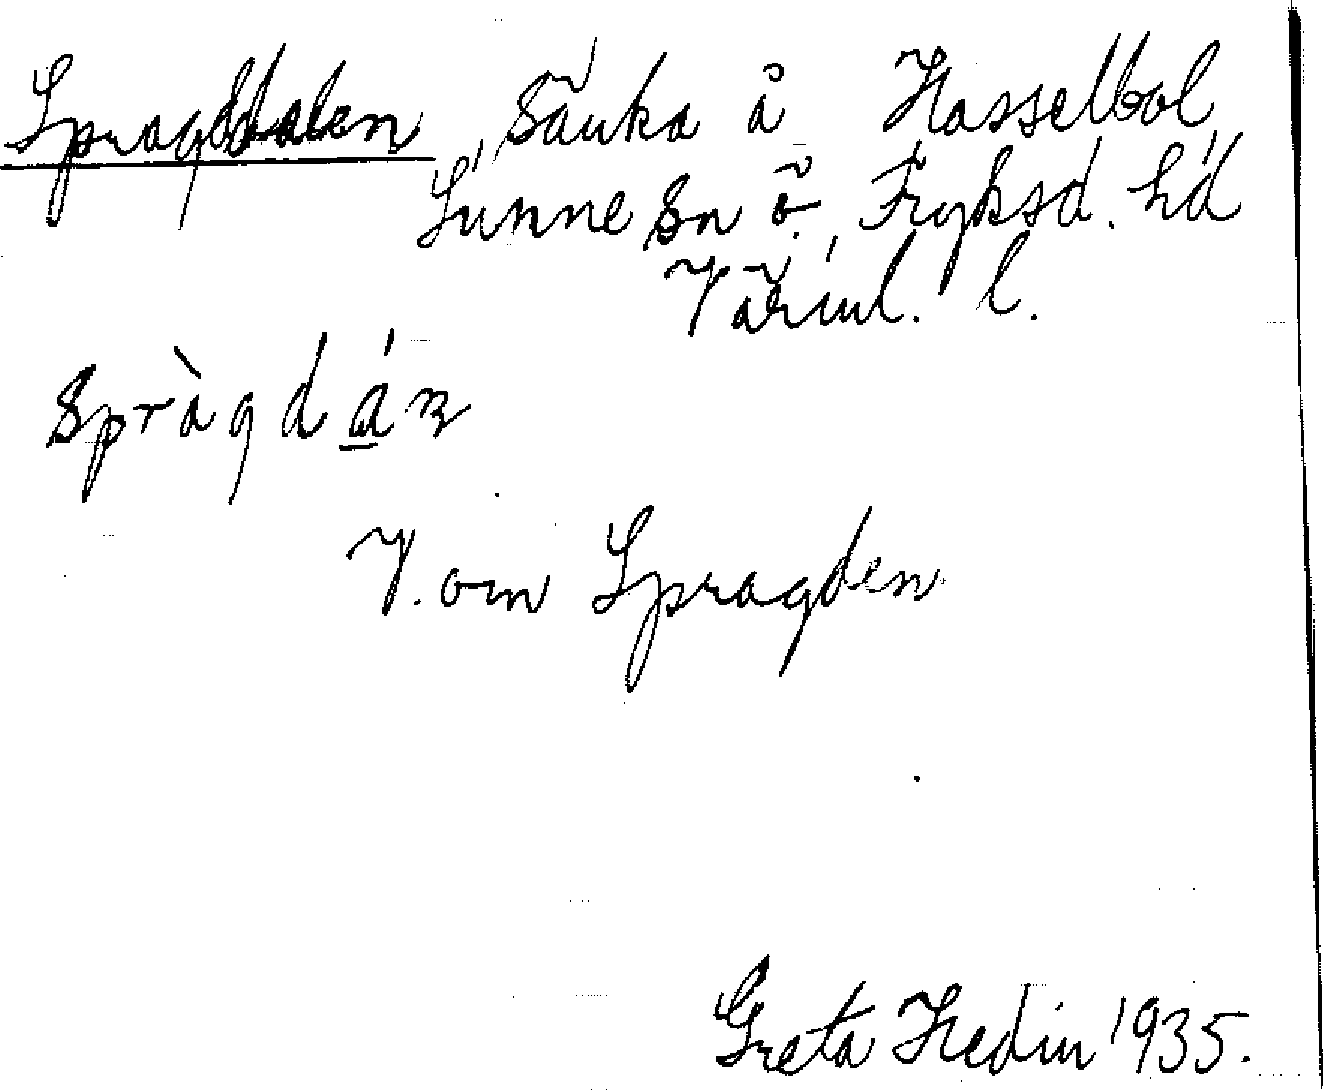 Spragddalen, sänka å Hasselbol,
Sunne sn Ö. Fryksd. hd
Värml. l.
spràgdán
V. om Spragden
Greta Hedin 1935.